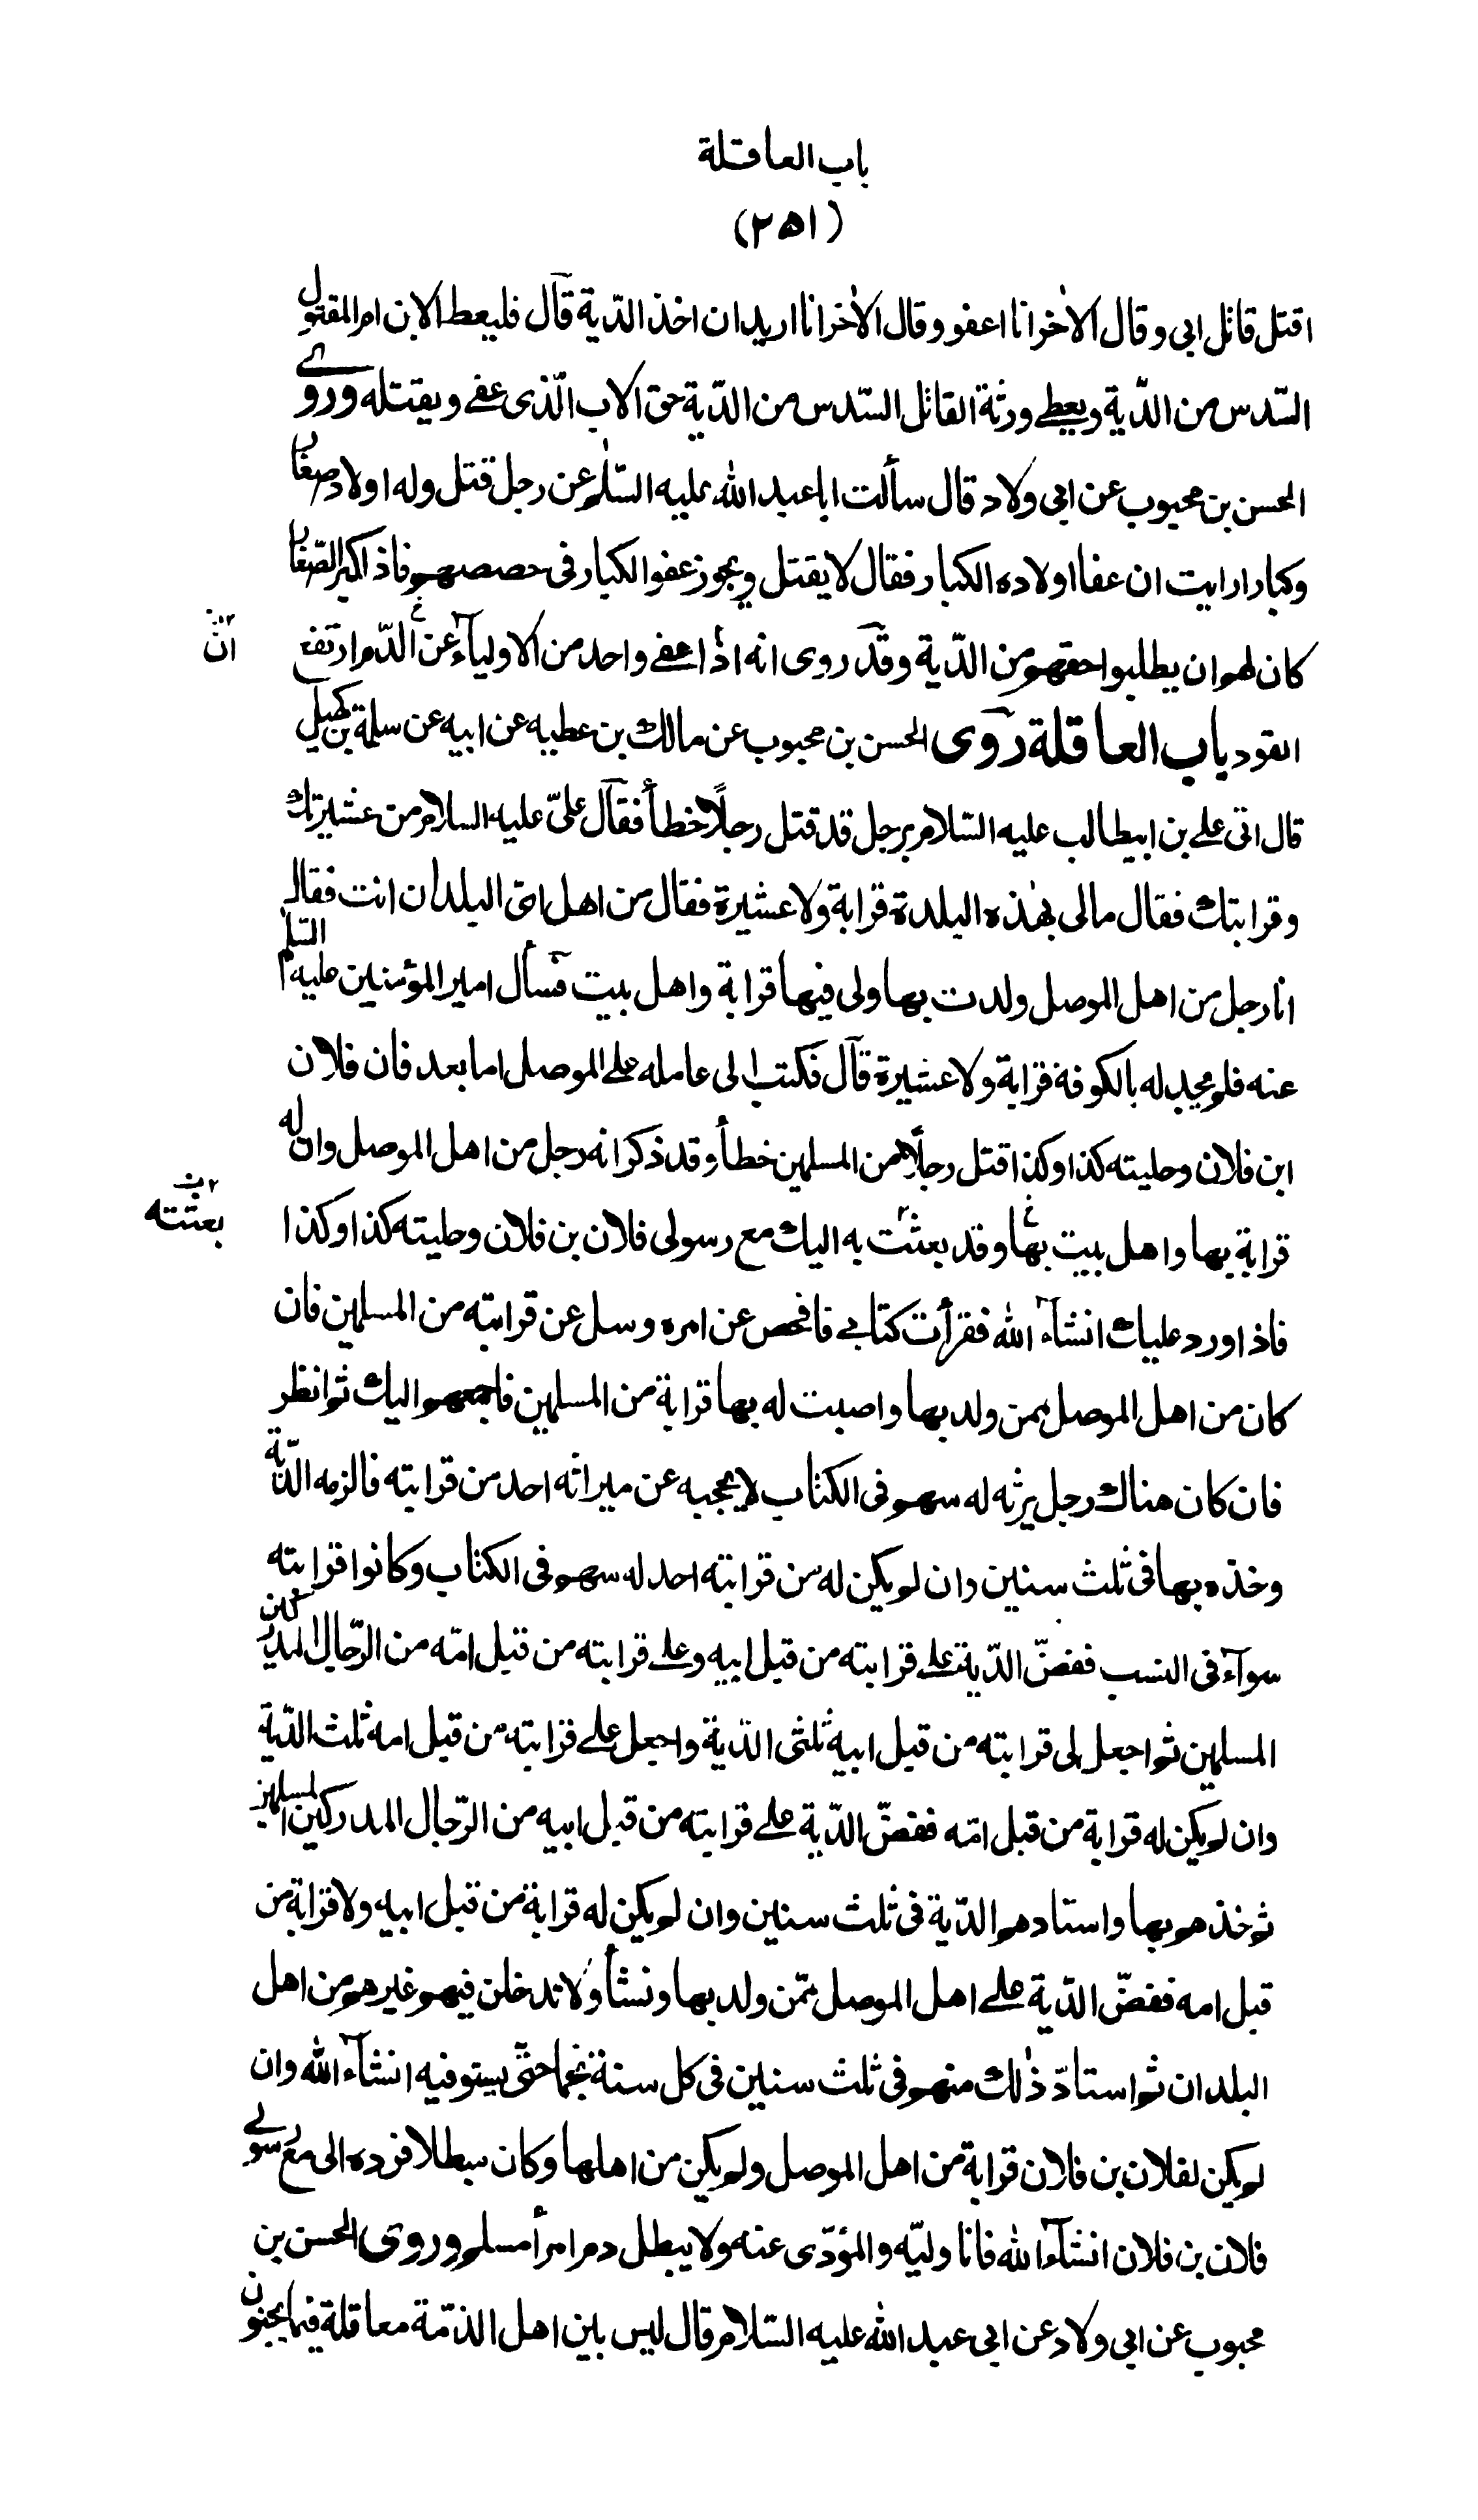 باب العاقلة
(٢٥١)
اقتل قاتل ابى وقال الاخر انا اعفو وقال الاخر انا اريد ان اخذ الدّية قال فليعط الابن ام المقتول
السّدس من الدّية ويعطى ورثة القاتل السّدس من الدّية حق الاب الّذى عفى ويقتله وروى
الحسن بن محبوب عن ابى ولاد قال سألت ابا عبد الله عليه السّلم عن رجل قتل وله اولاد صغار
وكبار ارايت ان عفا اولاده الكبار فقال لا يقتل ويجوز عفو الكبار فى حصصهم فاذا كبر الصّغار
كان لهم ان يطلبوا حقهم من الدّية وقد روى انه اذا عفى واحد من الاولياء عن الدّم ارتفع
القود باب العاقلة روى الحسن بن محبوب عن مالك بن عطيه عن ابيه عن سلمة بن كهيل
قال اتى على بن ابيطالب عليه السّلام برجل قد قتل رجلاً خطأ فقال علىّ عليه السلام من عشيرتك
وقرابتك فقال مالى بهذه البلدة قرابة ولا عشيرة فقال من اهل اىّ البلدان انت فقال
انا رجل من اهل الموصل ولدت بها ولى فيها قرابة واهل بيت فسأل امير المؤمنين عليه السّلم
عنه فلم يجد له بالكوفة قرابة ولا عشيرة قال فكتب الى عامله على الموصل اما بعد فان فلان
ابن فلان وحليته كذا وكذا قتل رجلاً من المسلمين خطأ وقد ذكر انه رجل من اهل الموصل وان له
قرابة بها واهل بيت بها وقد بعثت به اليك مع رسولى فلان بن فلان وحليته كذا وكذا
بعثته
فاذا ورد عليك انشاء الله فقرأت كتابى فافحص عن امره وسل عن قرابته من المسلمين فان
كان من اهل الموصل ممن ولد بها واصبت له بها قرابة من المسلمين فاجمعهم اليك ثم انظر
فان كان هناك رجل يرثه له سهم فى الكتاب لا يحجبه عن ميراثه احد من قرابته فالزمه الدّية
وخذه بها فى ثلث سنين وان لم يكن له من قرابته احد له سهم فى الكتاب وكانوا قرابته
سواء فى النسب ففضّ الدّية على قرابته من قبل ابيه وعلى قرابته من قبل امّه من الرّجال المدركين
المسلمين ثم اجعل على قرابته من قبل ابيه ثلثى الدّية واجعل على قرابته من قبل امه ثلث الدّية
وان لم يكن له قرابة من قبل امّه ففضّ الدّية على قرابته من قبل ابيه من الرّجال المدركين المسلمين
ثم خذهم بها واستادهم الدّية فى ثلث سنين وان لم يكن له قرابة من قبل ابيه ولا قرابة من
قبل امه ففضّ الدّية على اهل الموصل ممّن ولد بها ونشأ ولا تدخلن فيهم غيرهم من اهل
البلدان ثم استادّ ذلك منهم فى ثلث سنين فى كل سنة نجما حتّى يستوفيه انشاء الله وان
لم يكن لفلان بن فلان قرابة من اهل الموصل ولم يكن من اهلها وكان مبطلا فرده الى مع رسولى
فلان بن فلان انشاء الله فانا وليّه والمؤدّى عنه ولا يبطل دم امرأ مسلم وروى الحسن بن
محبوب عن ابى ولاد عن ابى عبد الله عليه السّلام قال ليس بين اهل الذمّة معاقلة فيما يجنون